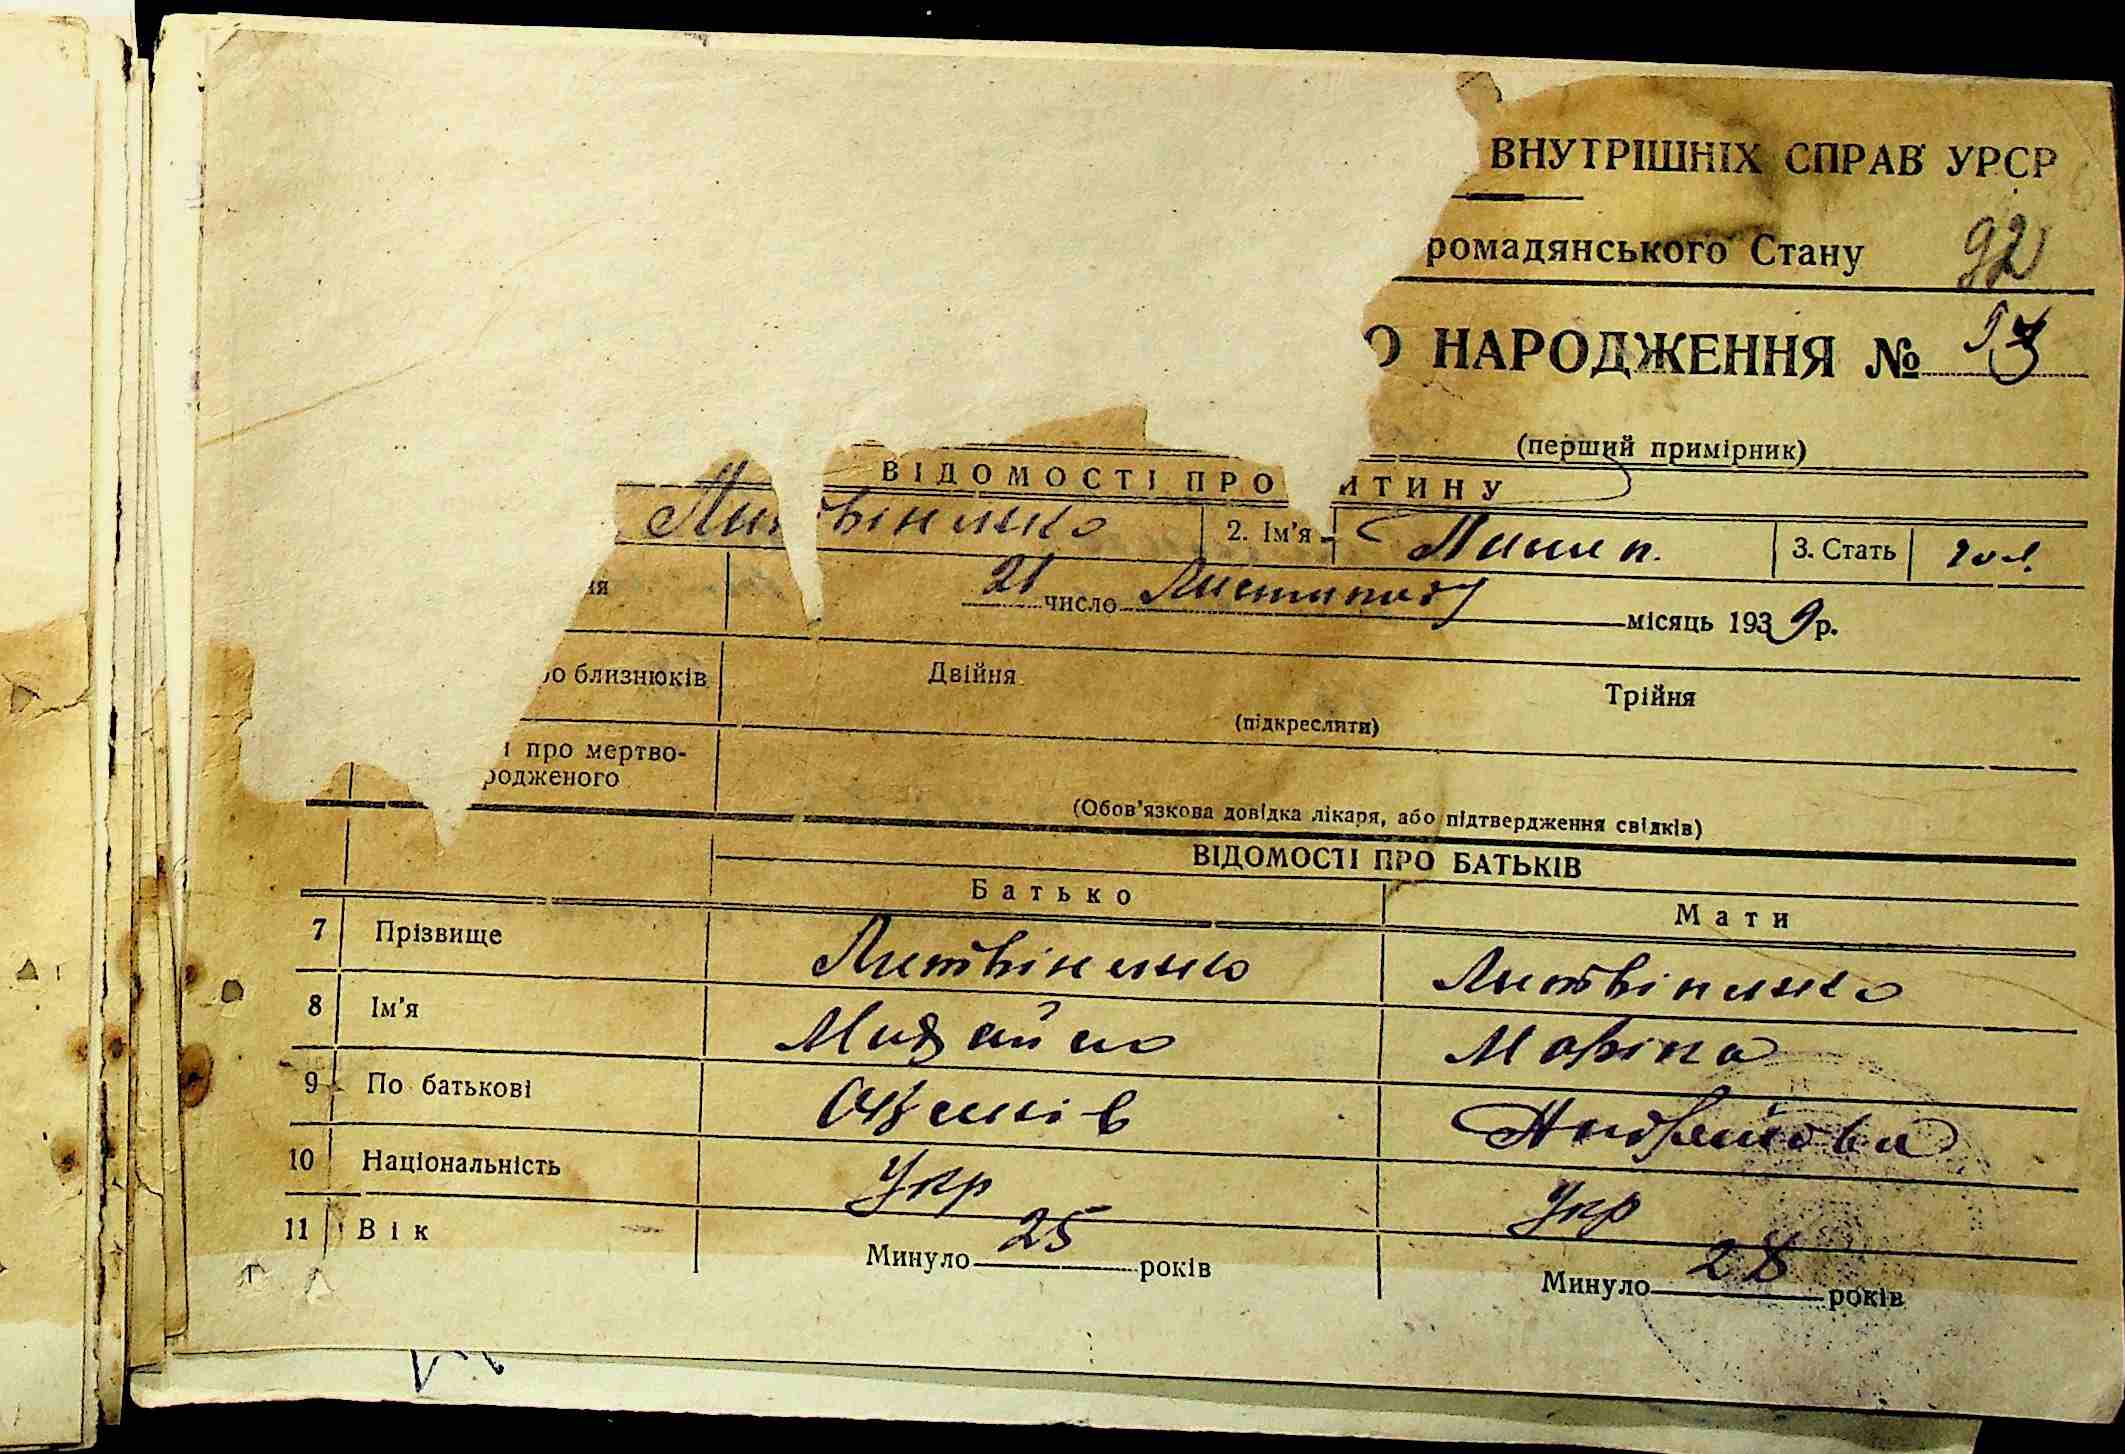 ВНУТРІШНІХ СПРАВ УРСР
ромадянського Стану 92
О НАРОДЖЕННЯ №
(перший примірник)
ВІДОМОСТІ ПРО ИТИНУ
Литвіненко 2. Ім'я 3. Стать чол.
ня 21 число Листопаду місяць 1939 р.
ро близнюків Двійня Трійня
(підкреслити)
і про мертво-
родженого
(Обов'язкова довідка лікаря, або підтвердження свідків)
ВІДОМОСТІ ПРО БАТЬКІВ
Батько Мати
7 Прізвище Литвіненко Литвіненко
8 Ім'я Михайло Марина
9 По батькові
10 Національність Укр Укр
11 Вік Минуло 25 років Минуло 28 років